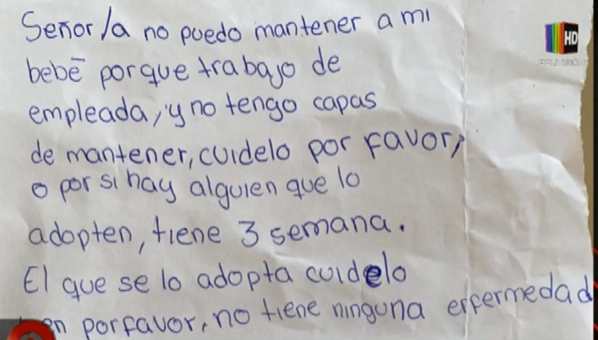 Señor/a no puedo mantener a mi
bebē porque trabajo de
empleada, y no tengo capas
de mantener, cuidelo por favor,
o por si hay alguien que lo
adopten, tiene 3 semana.
El que se lo adopta cuidelo
en porfavor, no tiene ninguna erfermedad
HD